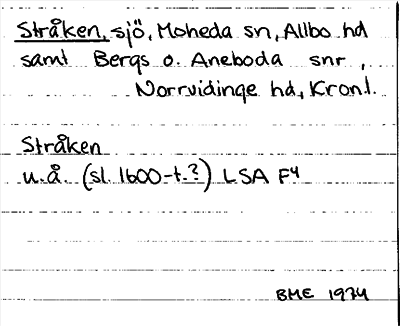 Stråken, sjö, Moheda sn, Allbo hd
samt Bergs o. Aneboda snr,
Norrvidinge hd, Kronl.
Stråken
u.å. (sl. 1600-t.?) LSA F4
BME 1974